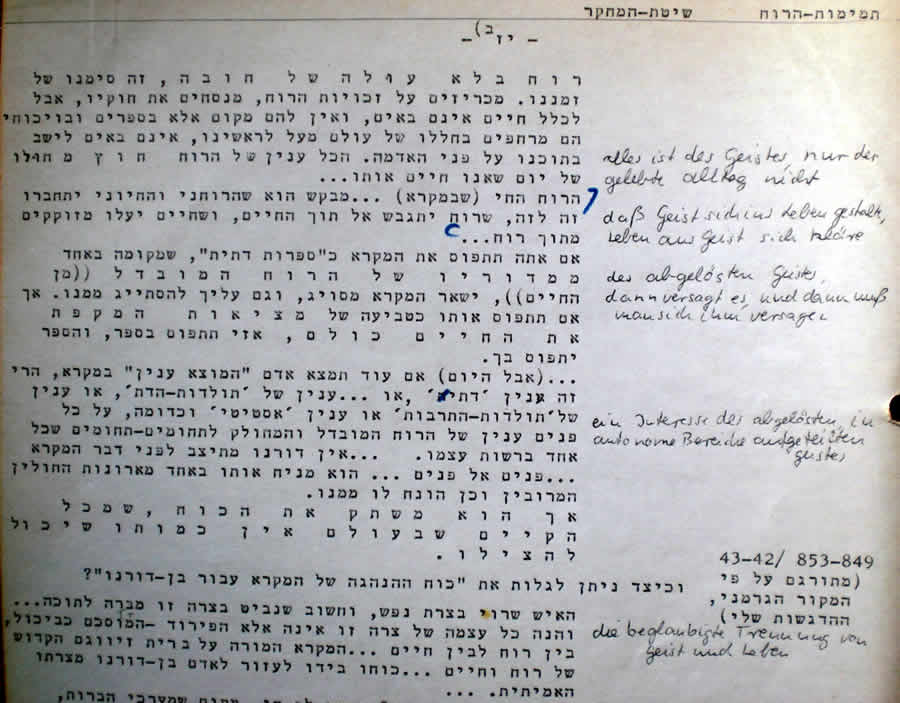 תמימות-הרוח שיטת-המחקר
- יז ב) -
רוח בלא עולה של חובה, זה סימנו של
זמננו. מכריזים על זכויות הרוח, מנסחים את חוקיו, אבל
לכלל חיים אינם באים, ואין להם מקום אלא בספרים ובויכוחי
הם מרחפים בחללו של עולם מעל לראשינו, אינם באים לישב
בתוכנו על פני האדמה. הכל ענין של הרוח חוץ מחולו
של יום שאנו חיים אותו...
הרוח החי (שבמקרא) ...מבקש הוא שהרוחני והחיוני יתחברו
זה לזה, שרוח יתגבש אל תוך החיים, ושחיים יעלו מזוקקים
מתוך רוח...
אם אתה תתפוס את המקרא כ"ספרות דתית", שמקומה באחד
ממדוריו של הרוח המובדל ((מן
החיים)), ישאר המקרא מסויג, וגם עליך להסתייג ממנו. אך
אם תתפוס אותו כטביעה של מציאות המקפת
את החיים כולם, אזי תתפוס בספר, והספר
יתפוס בך.
...(אבל היום) אם עוד תמצא אדם "המוצא ענין" במקרא, הרי
זה ענין 'דתי', או ...ענין של 'תולדות-הדת', או ענין
של 'תולדות-התרבות' או ענין 'אסטיטי' וכדומה, על כל
פנים ענין של הרוח המובדל והמחולק לתחומים-תחומים שכל
אחד ברשות עצמו. ...אין דורנו מתיצב לפני דבר המקרא
...פנים אל פנים ... הוא מניח אותו באחד מארונות החולין
המרובין וכן הונח לו ממנו.
אך הוא משתק את הכוח, שמכל
הקיים שבעולם אין כמותו שיכול
להצילו.
וכיצד ניתן לגלות את "כוח ההנהגה של המקרא עבור בן-דורנו"?
האיש שרוי בצרת נפש, וחשוב שנביט בצרה זו מברה לתוכה...
והנה כל עצמה של צרה זו אינה אלא הפירוד -המוסכם כביכול,
בין רוח לבין חיים ...המקרא המורה על ברית זיווגם הקדוש
של רוח וחיים ...כוחו בידו לעזור לאדם בן-דורנו מצרתו
האמיתית. ...
alles ist des Geistes, nur der
gelebte Alltag nicht
daß Geist sich ins Leben gestalte,
Leben aus Geist sich kläre
des abgelösten Geistes,
dann versagt es, und dann muß
man sich ihm versagen
ein Interesse des abgelösten, in
autonome Bereiche aufgeteilten
Geistes
43-42/ 853-849
(מתורגם על פי
המקור הגרמני,
ההדגשות שלי)
die beglaubigte Trennung von
Geist und Leben